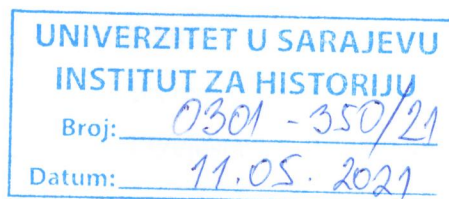 UNIVERZITET U SARAJEVU
INSTITUT ZA HISTORIJU
Broj: 0301-350/21
Datum: 11.05.2021